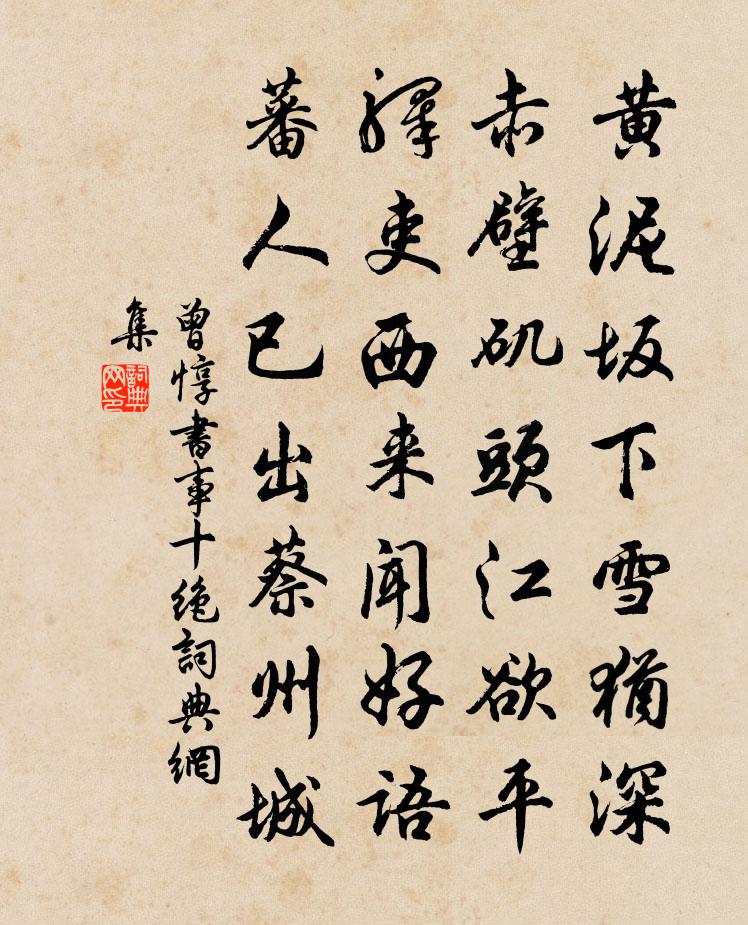 黄泥坂下雪猶深
赤壁矶頭江欲平
驛吏西来聞好語
蕃人已出蔡州城
曾惇書事十绝詞典網
集
詞典
网印